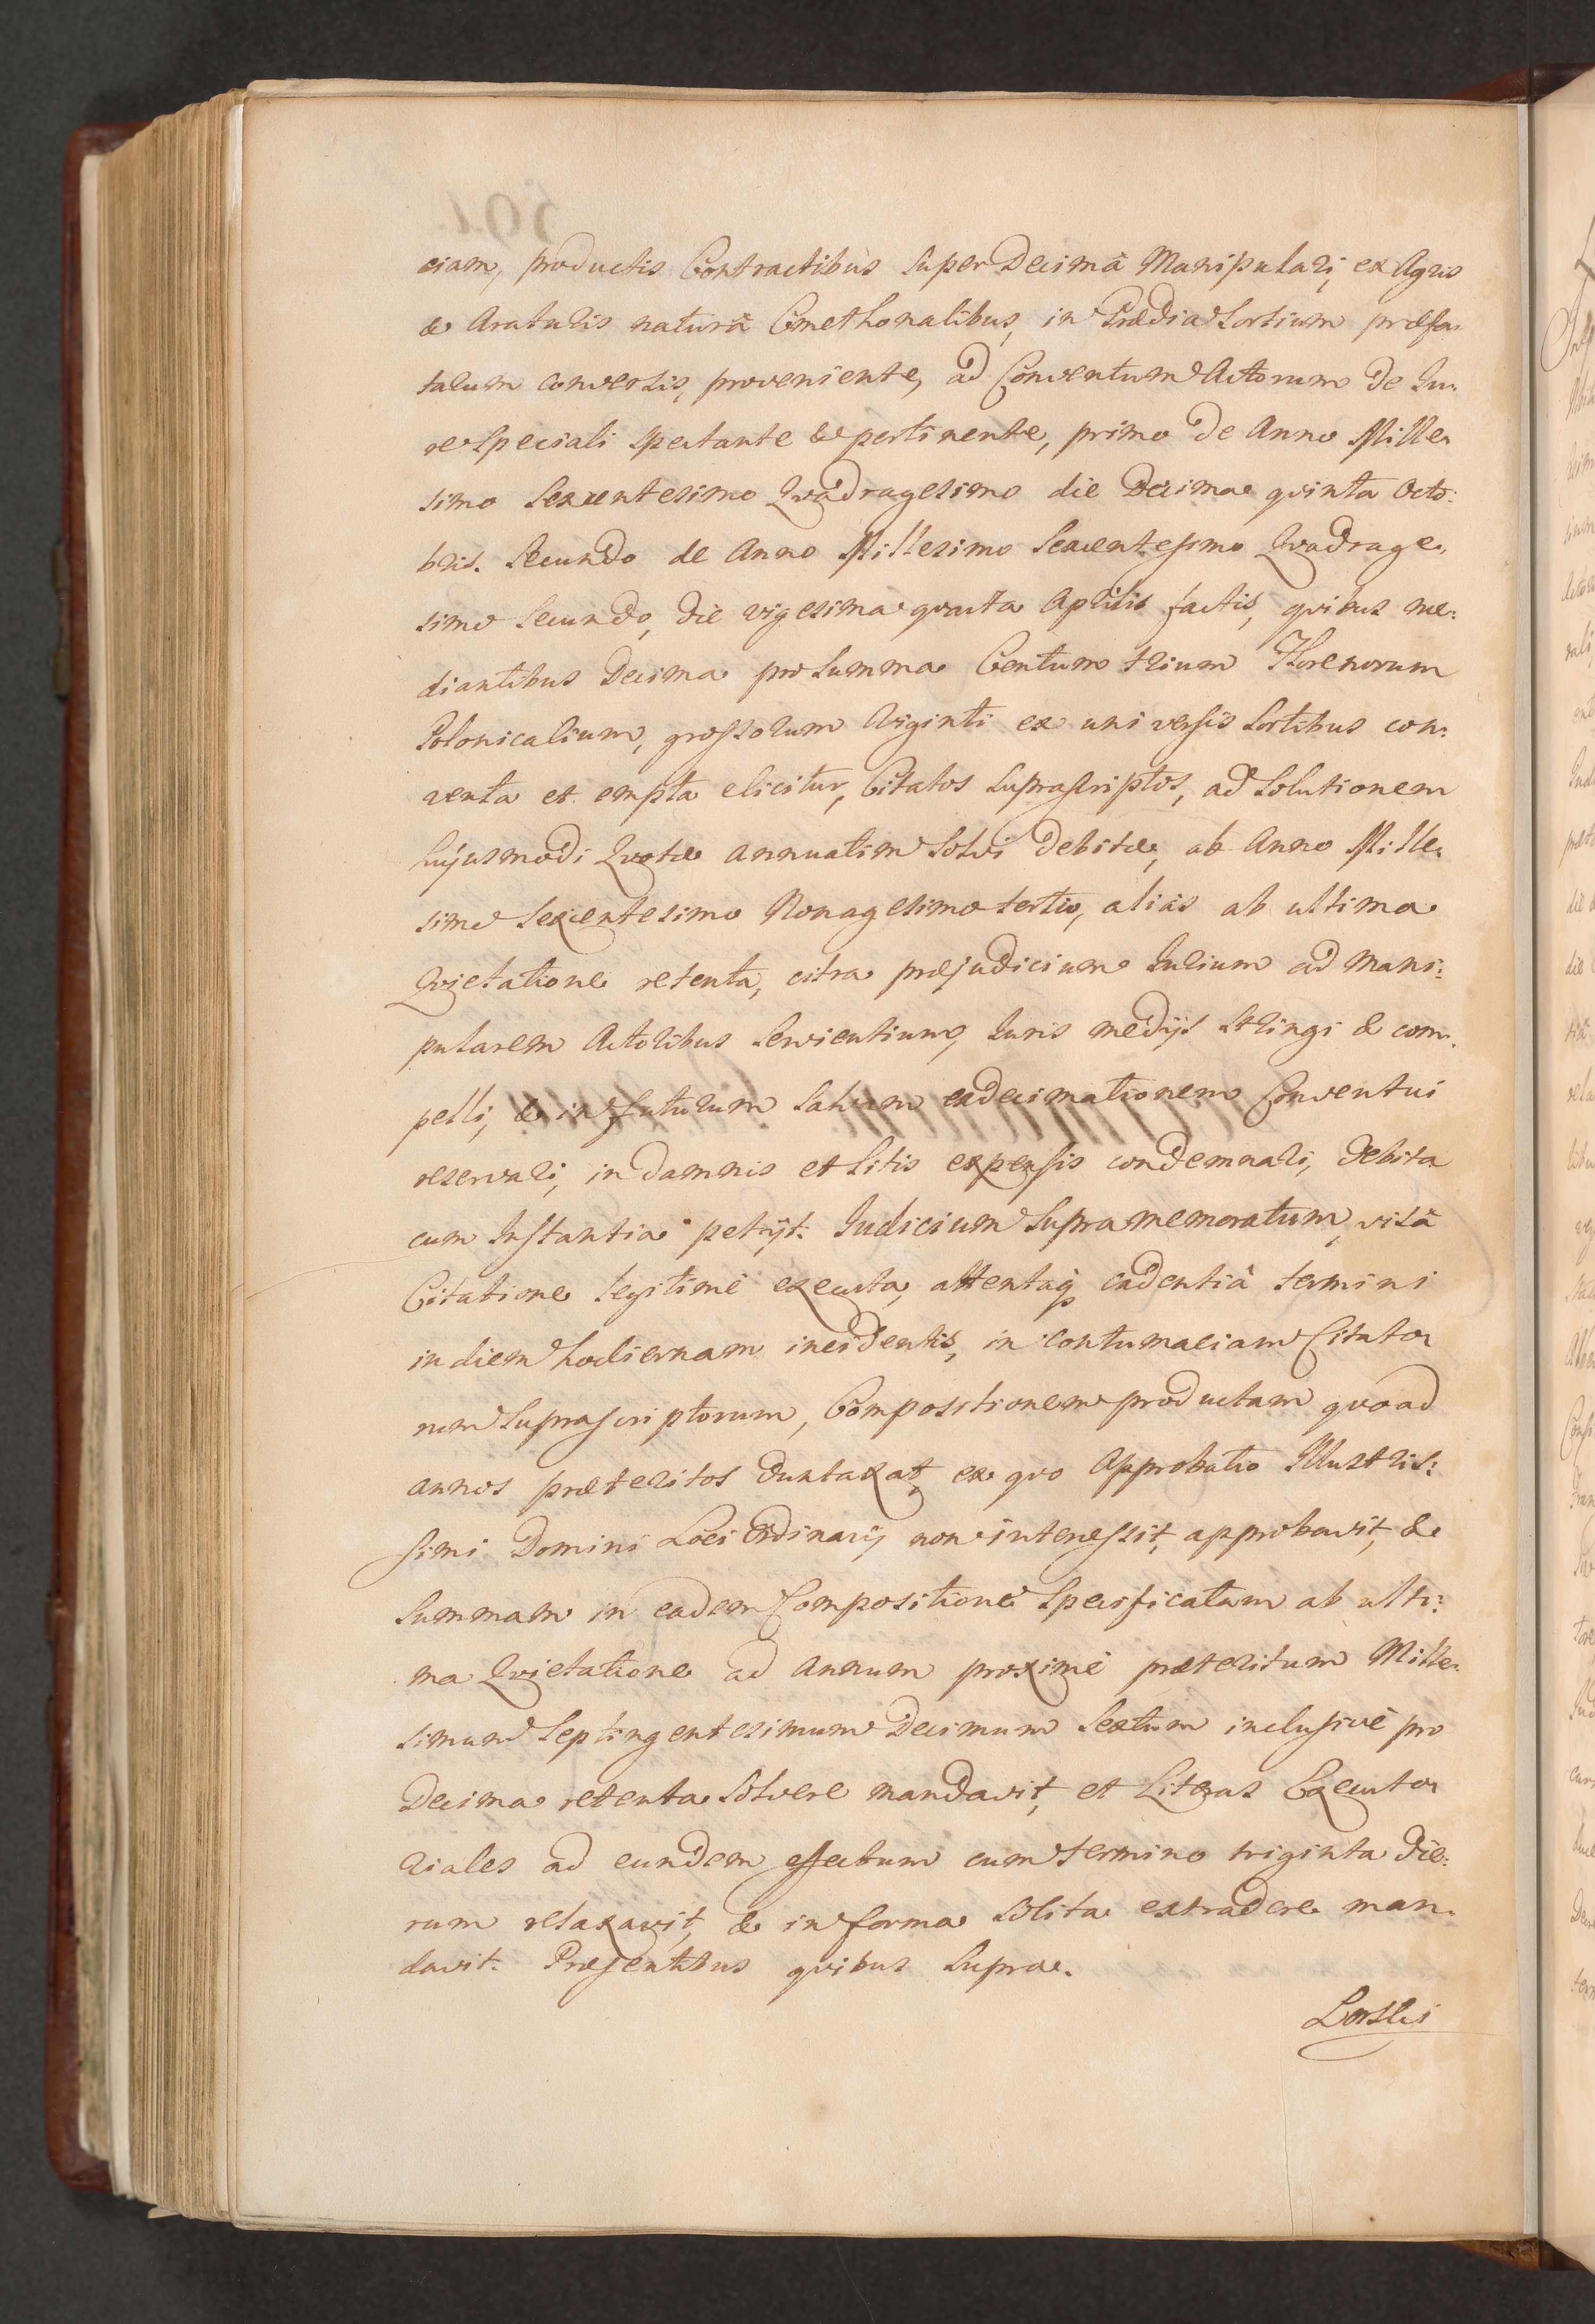 ciam, productis Contractibus super Decimâ Manipulari, ex Agris
& Araturis naturâ Cmethonalibus, in Prædia Sortium præfa-
tarum conversis, proveniente, ad Conventum Actorum de Ju-
re speciali spectante & pertinente, primo de Anno Mille-
simo Sexcentesimo Qvadragesimo die Decima qvinta Octo:
bris. Secundo de Anno Millesimo Sexcentesimo Qvadrage-
simo Secundo, die vigesima qvarta Aprilis factis, qvibus me:
diantibus Decima pro Summa Centum trium Florenorum
Polonicalium, grossorum Viginti ex universis Sortibus con:
venta et empta elicitur, Citatos Suprascriptos, ad Solutionem
hujusmodi Qvotæ annuatim Solvi debitæ, ab Anno Mille-
simo Sexcentesimo Nonagesimo tertio, aliàs ab ultima
Qvietatione retenta, citra præjudicium Jurium ad Mani:
pularem Actoribus Servientium, Juris medijs Stringi & com-
pelli, & in futurum Salvam exdecimationem Conventui
reservari, in damnis et Litis expensis condemnari, debita
cum Instantia petijt. Judicium Supramemoratum, visâ
Citatione legitimè executa, attentaq; cadentiâ termini
in diem hodiernam incidentis, in contumaciam Citato-
rum Suprascriptorum, Compositionem productam qvoad
annos præteritos duntaxat, ex qvo Approbatio Illustris:
simi Domini Loci Ordinarij non intercessit, approbavit, &
Summam in eadem Compositione Specificatam ab ulti:
ma Qvietatione ad Annum proximè præteritum Mille-
simum Septingentesimum Decimum Sextum inclusivè pro
Decima retenta Solvere mandavit, et Literas Executo-
riales ad eundem effectum cum termino triginta die:
rum relaxavit, & in forma Solita extradere man-
davit. Præsentibus qvibus Supra.